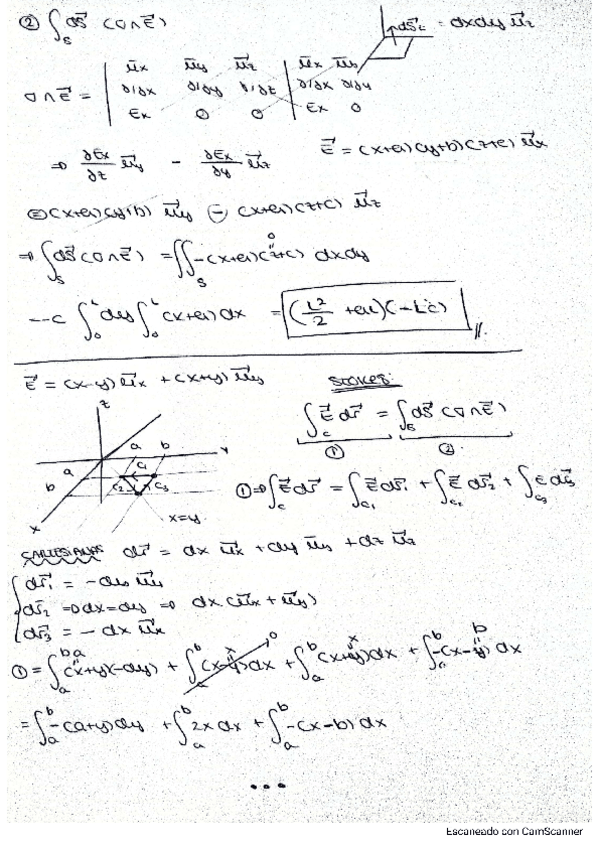 ② ∫_S dS⃗ (∇∧E⃗)
dS⃗z = dxdy u⃗z
u̅x u̅y u⃗z u̅x u̅y
∇∧E⃗ = ∂/∂x ∂/∂y ∂/∂z ∂/∂x ∂/∂y
Ex 0 0 Ex 0
⇒ ∂Ex/∂z u⃗y - ∂Ex/∂y u⃗z
E⃗ = (x+a)(y+b)(z+c) u⃗x
= (x+a)(y+b) u⃗y - (x+a)(z+c) u⃗z
⇒ ∫_S dS⃗ (∇∧E⃗) = ∬_S -(x+a)(z+c) dxdy
0
--c ∫_0^L dy ∫_0^L (x+a) dx = (L²/2 + aL)(-Lc) //.
E⃗ = (x-y) u⃗x + (x+y) u⃗y
STOKES:
∫_C E⃗ dr⃗ = ∫_S dS⃗ (∇∧E⃗)
① ②
z
a b
y
a
b
C1
C2 C3
x
x=y
① ⇒ ∫_C E⃗ dr⃗ = ∫_C1 E⃗ dr⃗1 + ∫_C2 E⃗ dr⃗2 + ∫_C3 E dr⃗3
CARTESIANAS dr⃗ = dx u⃗x + dy u⃗y + dz u⃗z
dr⃗1 = -dy u⃗y
dr⃗2 ⇒ dx=dy ⇒ dx(u⃗x + u⃗y)
dr⃗3 = -dx u⃗x
① = ∫_a^b (x+y)(-dy) + ∫_a^b (x-y)dx + ∫_a^b (x+y)dx + ∫_a^b -(x-y)dx
a x 0 x b
= ∫_a^b -(a+y)dy + ∫_a^b 2x dx + ∫_a^b -(x-b)dx
...
Escaneado con CamScanner